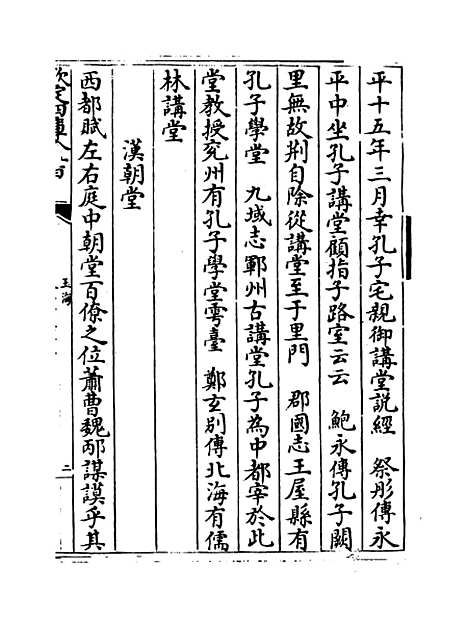 平十五年三月幸孔子宅親御講堂說經　祭彤傳永
平中坐孔子講堂顧指子路室云云　鮑永傳孔子闕
里無故荆自除從講堂至于里門　郡國志王屋縣有
孔子學堂　九域志鄆州古講堂孔子為中都宰於此
堂教授兖州有孔子學堂雩臺　鄭玄别傳北海有儒
林講堂
漢朝堂
西都賦左右庭中朝堂百僚之位蕭曹魏邴謀謨乎其
欽定四庫全書
玉海
二